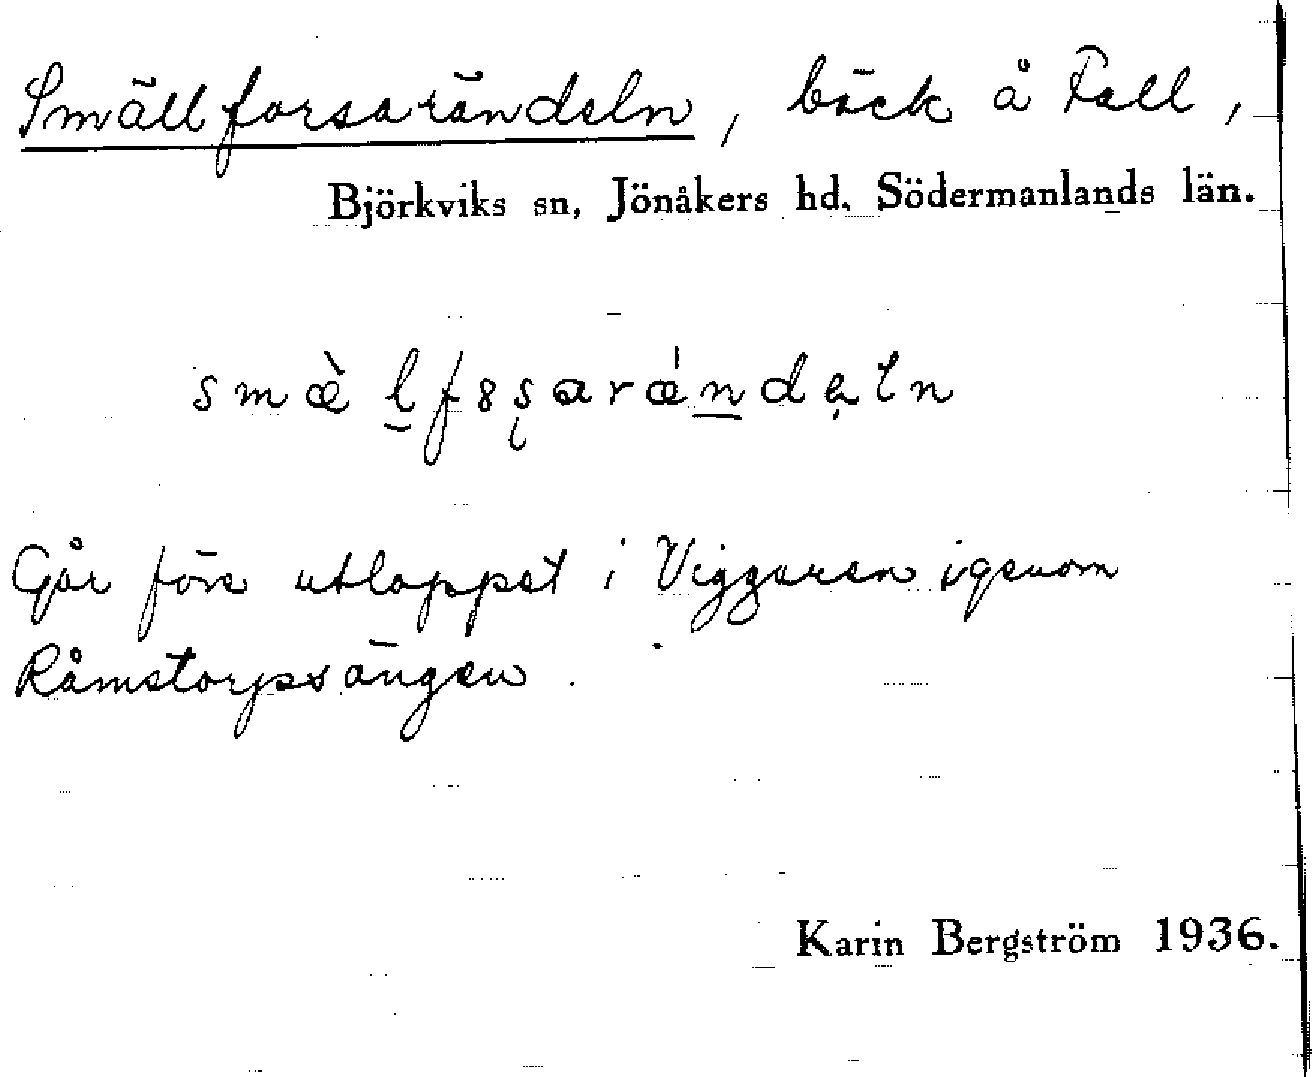 Smällforsarändeln, bäck å Fall,
Björkviks sn, Jönåkers hd. Södermanlands län.
smæ̀l̲fȣʂarǽn̲dəln
Går före utloppet i Viggaren igenom
Råmstorpsängen.
Karin Bergström 1936.